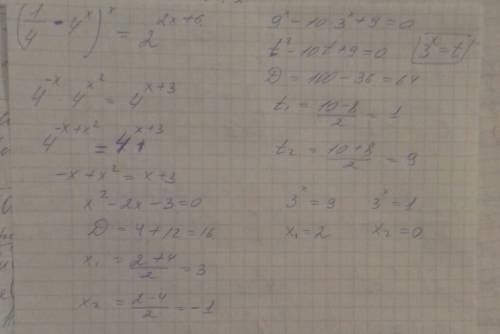 (1/4 · 4^x)^x = 2^(2x+6)
4^(-x) · 4^(x²) = 4^(x+3)
4^(-x+x²) = 4^(x+3)
-x + x² = x + 3
x² - 2x - 3 = 0
D = 4 + 12 = 16
x₁ = (2+4)/2 = 3
x₂ = (2-4)/2 = -1
9^x - 10·3^x + 9 = 0
t² - 10t + 9 = 0 3^x = t
D = 100 - 36 = 64
t₁ = (10-8)/2 = 1
t₂ = (10+8)/2 = 9
3^x = 9 3^x = 1
x₁ = 2 x₂ = 0